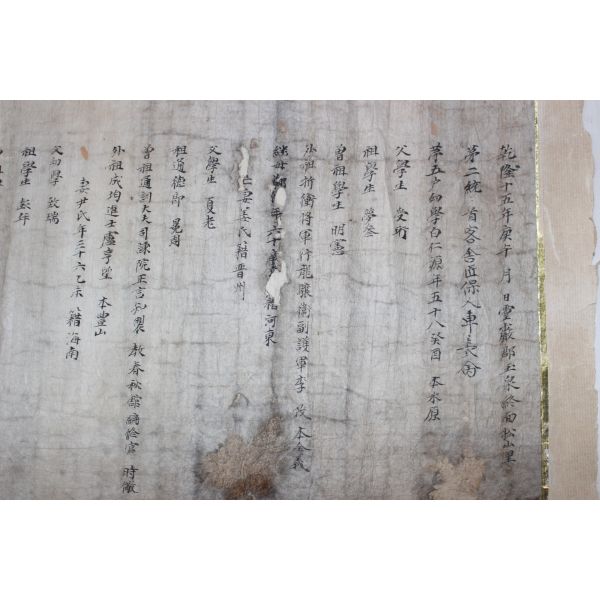 乾隆十五年庚午 月 日靈巖郡玉泉終面松山里
第二統 首客舍匠保人車
第五戶幼學白仁源年五十八癸酉 本水原
父學生 受珩
祖學生 夢參
曾祖學生 明憲
外祖折衝將軍行龍驤衛副護軍李 茂本全義
年六十 籍河東
亡妻姜氏籍晋州
父學生 夏老
祖通德郎 晃周
曾祖通訓大夫司諫院正言知製 教春秋館編修官 時徹
外祖成均進士盧亨望 本豊山
妻尹氏年三十六乙未 籍海南
父幼學 致瑞
祖學生